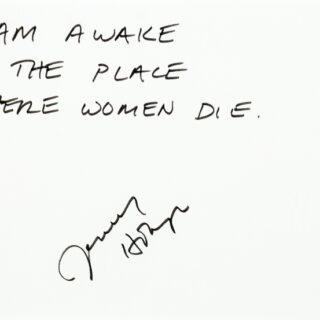 AM AWAKE
THE PLACE
ERE WOMEN DIE.
Jenny
Holzer